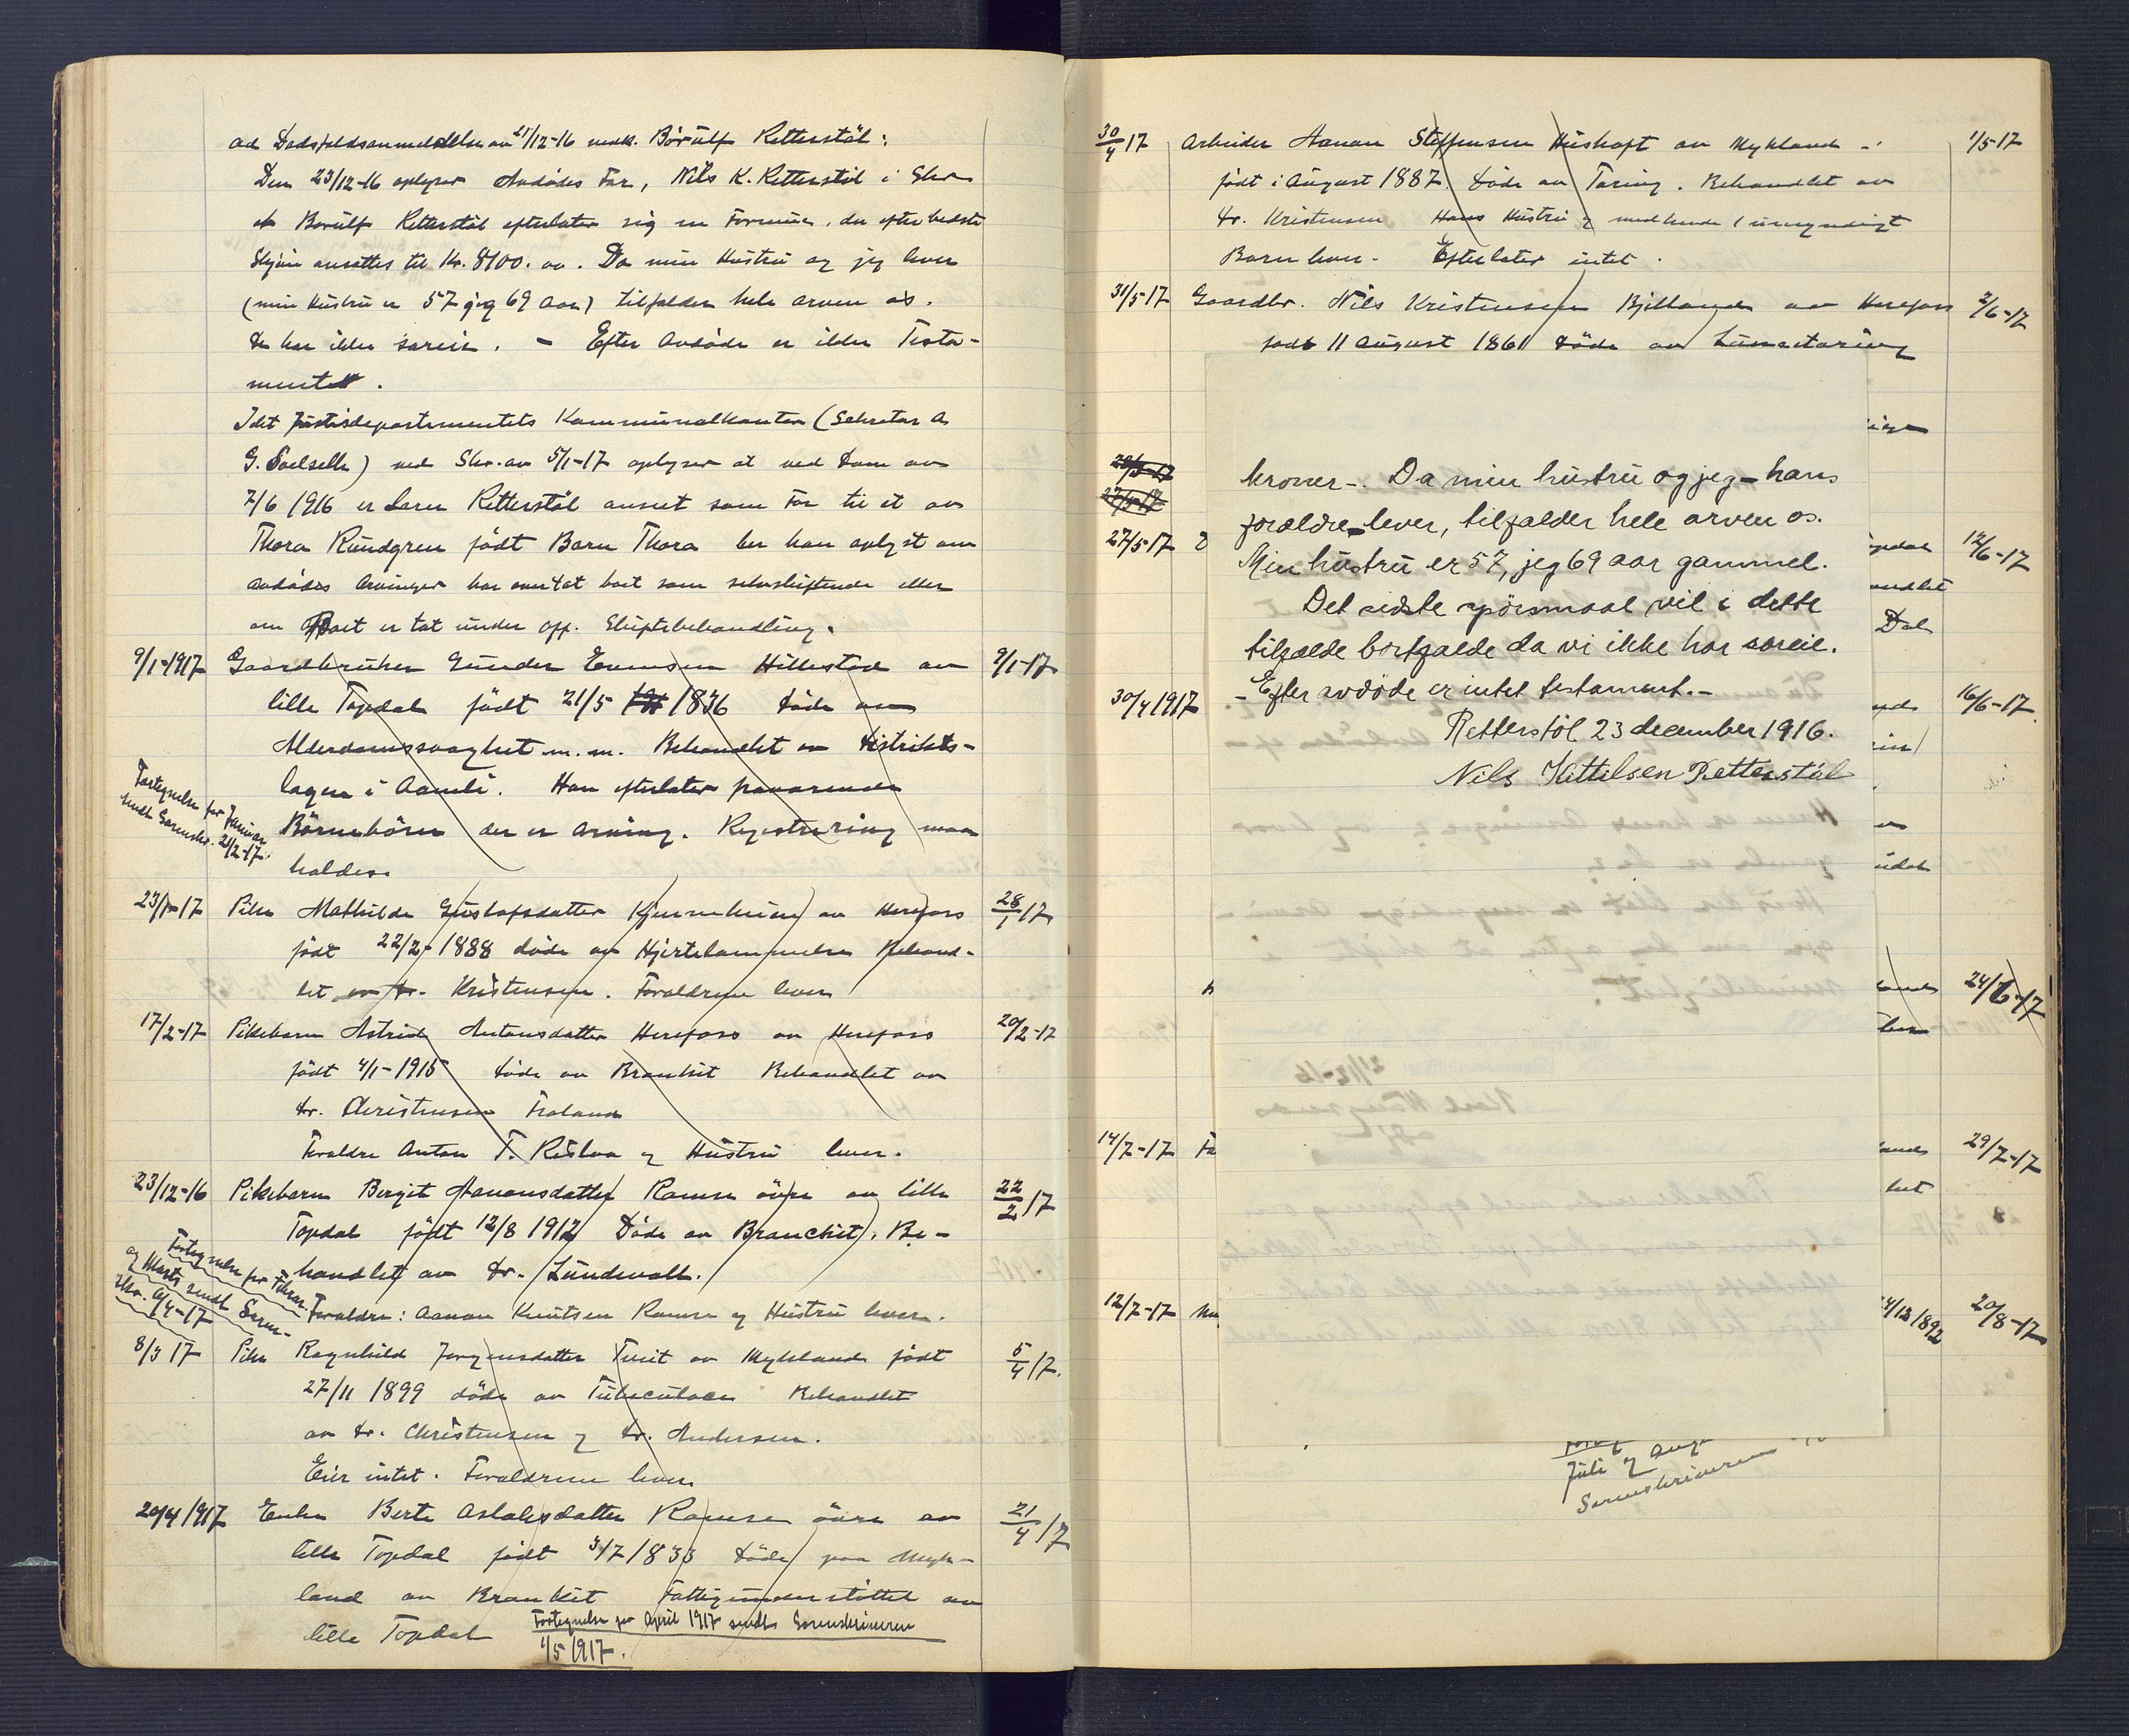 ad Dødsfaldsanmeldelse av 21/12-16 vedk. Börulf Retterstöl:
Den 23/12-16 oplyser Avdødes Far, Nils K. Retterstöl i Skr.
at Borulf Retterstöl efterlater sig en Formue, der efter bedste
Skjøn ansættes til Kr. 8100.00. Da min Hustru og jeg lever
(min Hustru er 57 jeg 69 Aar) tilfalder hele arven os.
har ikke særeie. - Efter Avdøde er ikke Testa-
mentet.
Idet Justisdepartementets Kommunalkontor (Sekretær A
G. ) ved Skr. av 5/1-17 oplyser at ved Dom av
7/6 1916 er Retterstöl anseet som Far til et av
Thora Rundgren født Barn Thora ber han oplyst om
avdødes Arvinger har overtat boet som selvskiftende eller
om Boet er tat under off. Skiftebehandling.
9/1-1917 Gaardbruker Gunder Evensen Hillestad av 9/1-17
lille Topdal født 21/5 1836 døde av
Alderdomssvaghet m.m. Behandlet av Distrikts-
lægen i Aamli. Han efterlater
Börnebörn der er Arving. Registrering maa
holdes.
Fortegnelse for Januar
sendt Sorenskr. 2/2-17.
23/1-17 Pike Mathilde Gustafsdatter av Herefoss 28/1 17
født 22/2-1888 døde av Hjertelammelse Behand-
let av Dr. Kristensen. Forældrene lever
17/2-17 Pikebarn Astrid Antonsdatter Herefoss av Herefoss 20/2-17
født 4/1-1915 døde av Bronkit Behandlet av
Dr. Christensen Froland
Forældre Anton T. Risløa og Hustru lever.
23/12-16 Pikebarn Bergit Aanonsdatter Ramse övre av lille 22/2 17
Topdal født 12/8 1912 Døde av Bronchit. Be-
handlet av Dr. Lundevall.
Fortegnelse for Februar
og Marts sendt Soren-
skr. 4/4-17
Forældre: Aanon Knutsen Ramse og Hustru lever.
8/3 17 Pike Ragnhild Jørgensdatter av Mykland født 5/4 17.
27/11 1899 døde av Tuberculose Behandlet
av Dr. Christensen og Dr. Andersen.
Eier intet. Forældrene lever
20/4 1917 Enke Berte Aslaksdatter Ramse övre av 21/4 17
lille Topdal født 3/7 1833 døde paa Myk-
land av Bronkit Fattigunderstöttet av
lille Topdal
Fortegnelse for April 1917 sendt Sorenskriveren
1/5 1917.
30/4 17 Arbeider Aanon Steffensen av Mykland 1/5-17
født i August 1887. Døde av Tæring. Behandlet av
Dr. Kristensen Hans Hustru og 1 umyndigt
Barn lever. Efterlater intet.
31/5-17 Gaardbr. Nils Kristensen Bjelland av Herefoss 2/6-17
født 11 August 1861 døde av Lungetæring
27/5-17
12/6-17
andlet
Dal
kroner-. Da min hustru og jeg - hans
forældre - lever, tilfalder hele arven os.
Min hustru er 57, jeg 69 aar gammel.
Det sidste spörsmaal vil i dette
tilfælde bortfalde da vi ikke har særeie.
- Efter avdøde er intet testament.-
Retterstöl 23 december 1916.
Nils Kittilsen Retterstöl
30/4 1917
16/6-17
24/6-17
14/7-17
29/7-17
12/7-17
20/8-17
Juli og Aug
Sorenskriveren